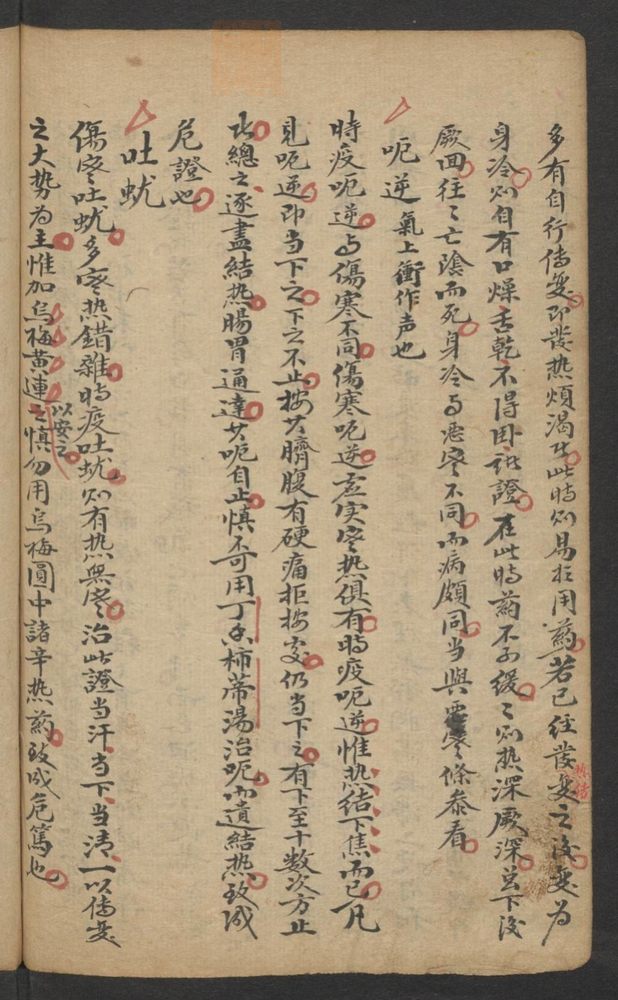 多有自行傳変即發热煩渴생此時知易抂用藥若已往發変之後変为
身冷知自有口燥舌乾不得卧诸證在此時藥不可缓〻知热深厥深兑下後
厥回往〻亡陰而死身冷与恶寒不同而病頗同当與恶寒條叅看
呃逆 氣上衝作声也
時疫呃逆与傷寒不同傷寒呃逆虚实寒热俱有時疫呃逆惟热结下焦而已凡
見呃逆即当下之下之不止按其臍腹有硬痛拒按処仍当下之有下至十数次方止
此總之逐盡結热腸胃通達其呃自止慎不可用丁香柿蒂湯治呃而遺結热致成
危證也
吐蚘
傷寒吐蚘多寒热錯雜時疫吐蚘知有热無寒治此證当汗当下当清一以傳変
之大势为主惟加烏梅黄連以安之慎勿用烏梅圓中諸辛热藥致成危篤也
热结